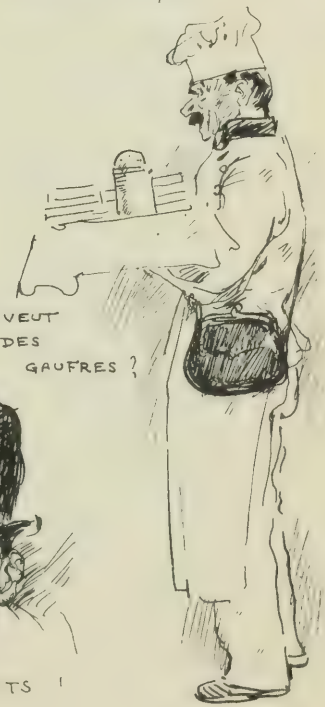 VEUT
DES
GAUFRES ?
TS !